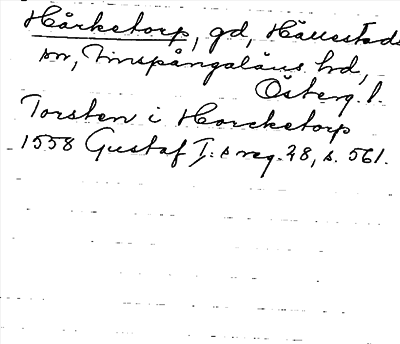 Hårketorp, gd, Hällestads
sn, Finspångaläns hd,
Österg. l.
Torsten i Horcketorp
1558 Gustaf I:s reg. 28, s. 561.